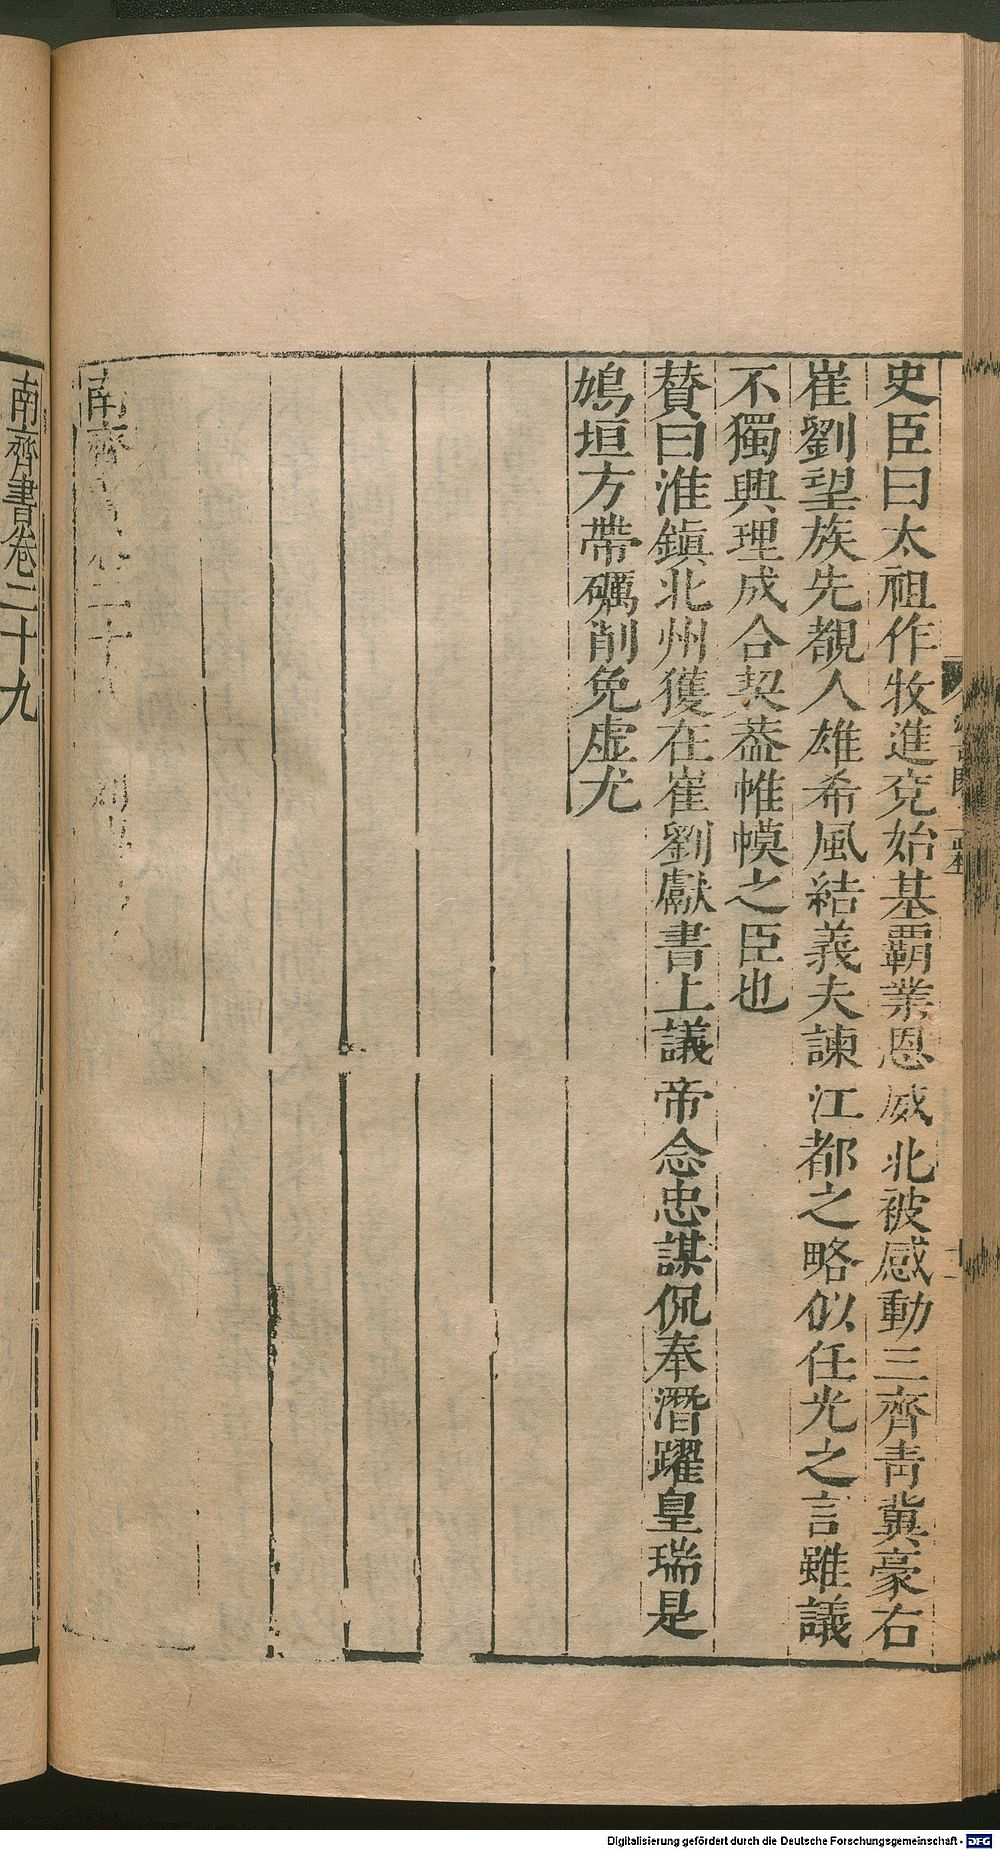 史臣曰太祖作牧進兗始基霸業恩威北被感動三齊青冀豪右
崔劉望族先覩人雄希風結義夫諫江都之略似任光之言雖議
不獨興理成合契葢帷幙之臣也
贊曰淮鎮北州獲在崔劉獻書上議帝念忠謀侃奉潛躍皇瑞是
鳩垣方帶礪削免虛尤
南齊書卷二十八
南齊書卷二十九
Digitalisierung gefördert durch die Deutsche Forschungsgemeinschaft - DFG